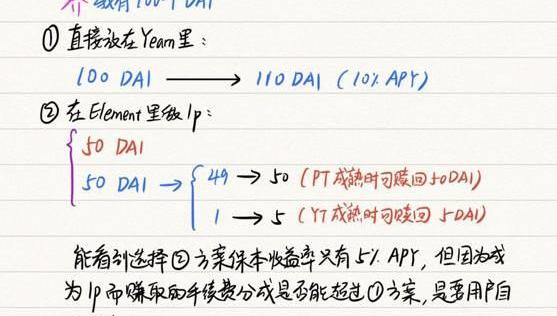 我有100个DAI
① 直接放在Yearn里：
100 DAI → 110 DAI (10% APY)
② 在Element里做lp：
50 DAI
50 DAI → 49 → 50 (PT成熟时可赎回50DAI)
1 → 5 (YT成熟时可赎回 5DAI)
能看到选择②方案保本收益率只有5% APY，但因为成
为lp而赚取的手续费分成是否能超过①方案，是要用户自